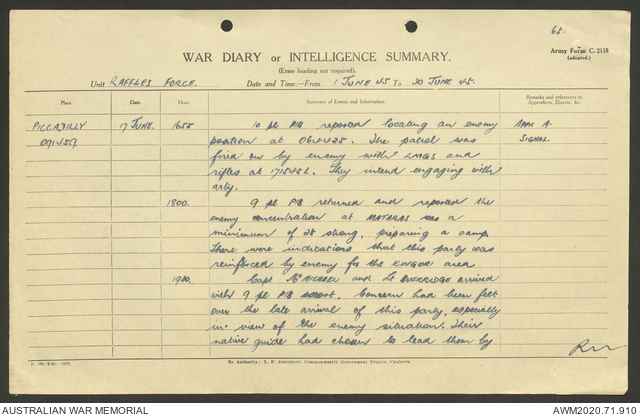 65.
Army Form C. 2118
(adapted.)
WAR DIARY or INTELLIGENCE SUMMARY.
(Erase heading not required).
Unit RAFFLES FORCE. Date and Time—From 1 JUNE 45 To 30 JUNE 45.
Place. Date. Hour. Summary of Events and Information. Remarks and references to Appendices, Diaries, &c.
PICCADILLY 17 JUNE. 1655 10 pl PIB reported locating an enemy Appx A.
071459 position at 064425. The patrol was SIGNAL.
fired on by enemy with LMGS and
rifles at 171545L. They intend engaging with
arty.
1800. 9 pl PIB returned and reported the
enemy concentration at MATARAS was a
minimum of 25 strong, preparing a camp.
There were indications that this party was
reinforced by enemy for the KINGORI area.
1930. Capt McMICHAEL and Lt BUCKRIDGE arrived
with 9 pl PIB escort. Concern had been felt
over the late arrival of this party, especially
in view of the enemy situation. Their
native guide had chosen to lead them by
By Authority: L. F. Johnston, Commonwealth Government Printer, Canberra.
AUSTRALIAN WAR MEMORIAL
AWM2020.71.910